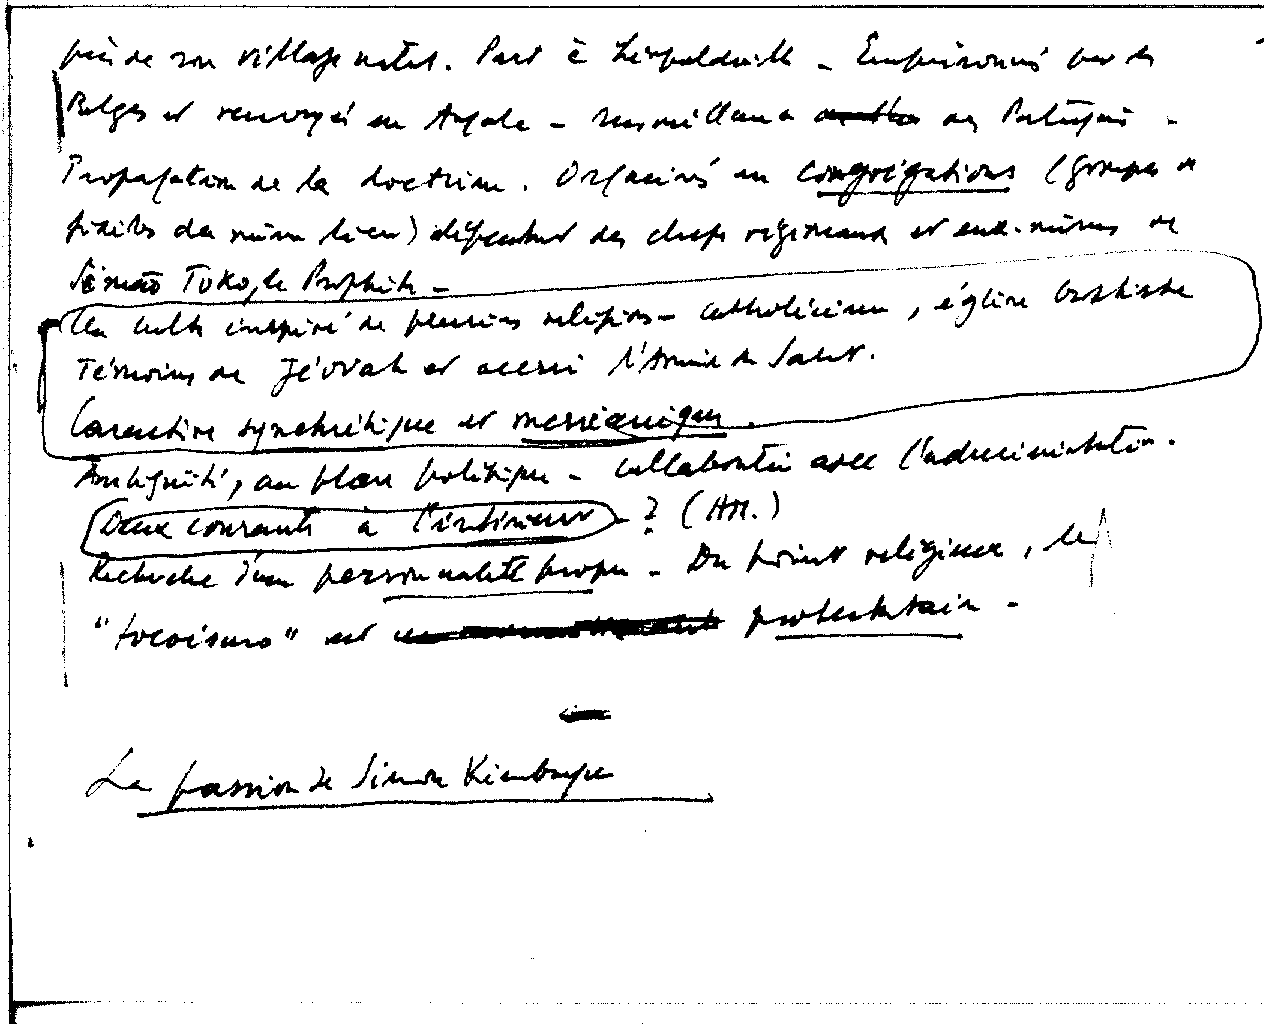 près de son village natal. Part à Léopoldville - Emprisonné par les
Belges et renvoyé en Angola - surveillance des Portugais -
Propagation de la doctrine. Organisés en congrégations (groupes de
fidèles du même lieu) dépendant des chefs régionaux et eux-mêmes de
Simão Toko, le Prophète -
Un culte inspiré de plusieurs religions - catholicisme, église baptiste
Témoins de Jéovah et aussi l'Armée du Salut.
Caractère synchrétique et messianique.
Ambiguïté, au plan politique - collaboration avec l'administration.
Deux courants à l'intérieur - ? (AM.)
Recherche d'une personnalité propre - Du point religieux, le
"tocoismo" est protestataire -
La passion de Simon Kimbangu